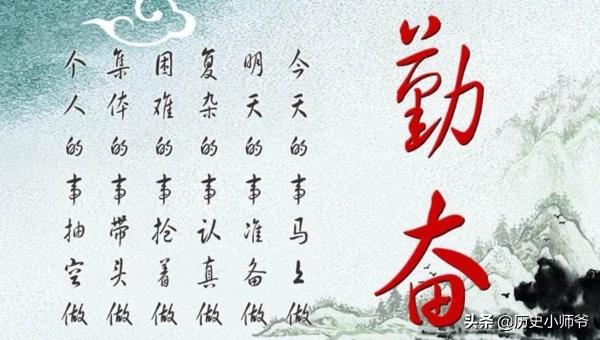 勤奋
今天的事马上做
明天的事准备做
复杂的事认真做
困难的事抢着做
集体的事带头做
个人的事抽空做
头条 @历史小师爷